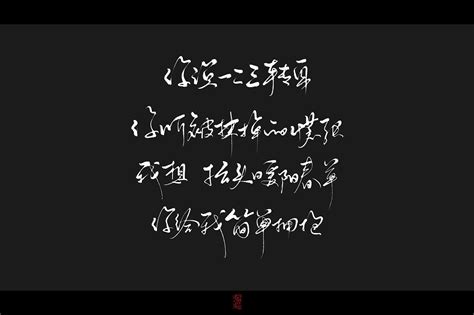 你说一二三转身
你听被抹掉的慌张
我想 抬头暖阳春草
你给我简单拥抱